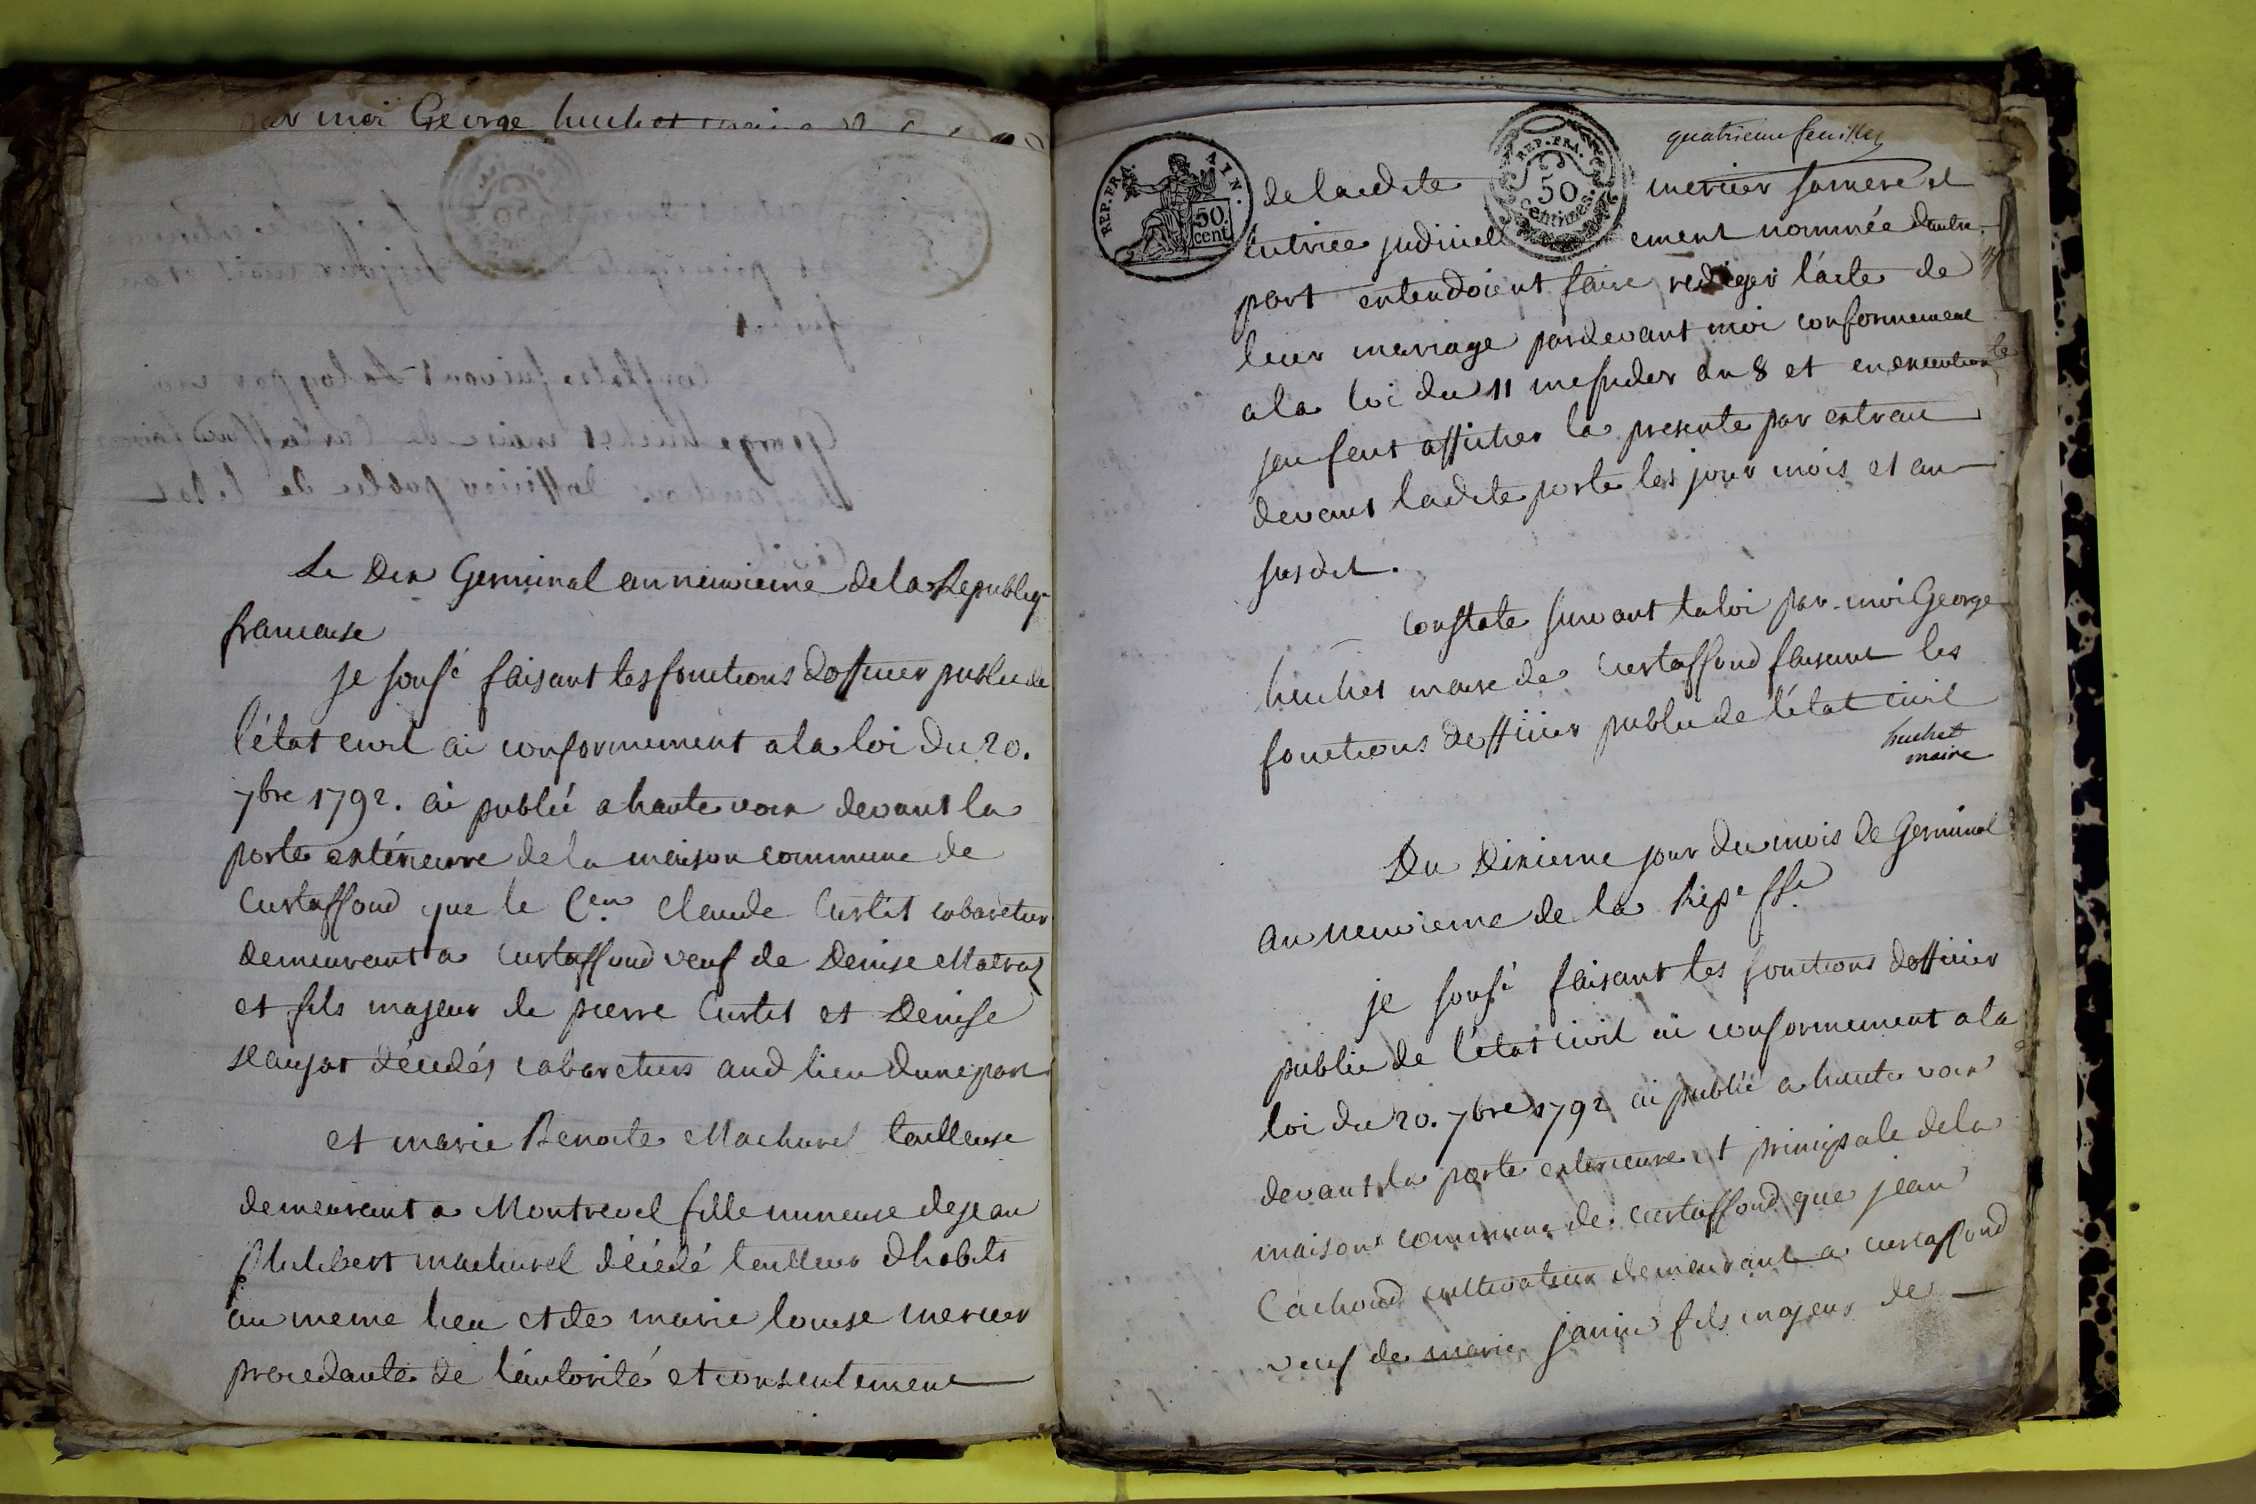 par moi George huchet maire
Le Dix Germinal an neuvieme de la Republiq
francaise
je sousé faisant les fonctions dofficier public de
l'état civil ai conformement a la loi du 20.
7bre 1792. ai publié a haute voix devant la
porte extérieure de la maison commune de
Curtaffond que le Cen Claude Curtet cabaretier
demeurant a Curtaffond veuf de Denise Matras
et fils majeur de pierre Curtet et Denise
décédés cabaretiers aud lieu dune part
et marie Benoite Machurel tailleuse
demeurant a Montrevel fille mineure de jean
philibert machurel décédé tailleur dhabits
au meme lieu et de marie louise mercier
procedante de l'autorité et consentement
quatrieme feuillet
REP. FRA. AIN.
50 cent.
REP. FRA.
50 Centimes.
de ladite mercier sa mere et
tutrice judiciellement nommée dautre
part entendoient faire rediger l'acte de
leur mariage pardevant moi conformement
a la loi du 11 messider an 8 et en execution
jen fait afficher la presente par extrait
devant ladite porte les jour mois et an
susdit.
Constate suivant la loi par moi George
huchet maire de Curtaffond faisant les
fonctions dofficier public de l'état civil
huchet
maire
Du Dixieme jour du mois de Germinal
an neuvieme de la Repe ffe
je sousé faisant les fonctions dofficier
public de l'état civil ai conformement a la
loi du 20. 7bre 1792 ai publié a haute voix
devant la porte exterieure et principale de la
maison commune de curtaffond que jean
Cachoud cultivateur demeurant a curtaffond
veuf de marie janin fils majeur de